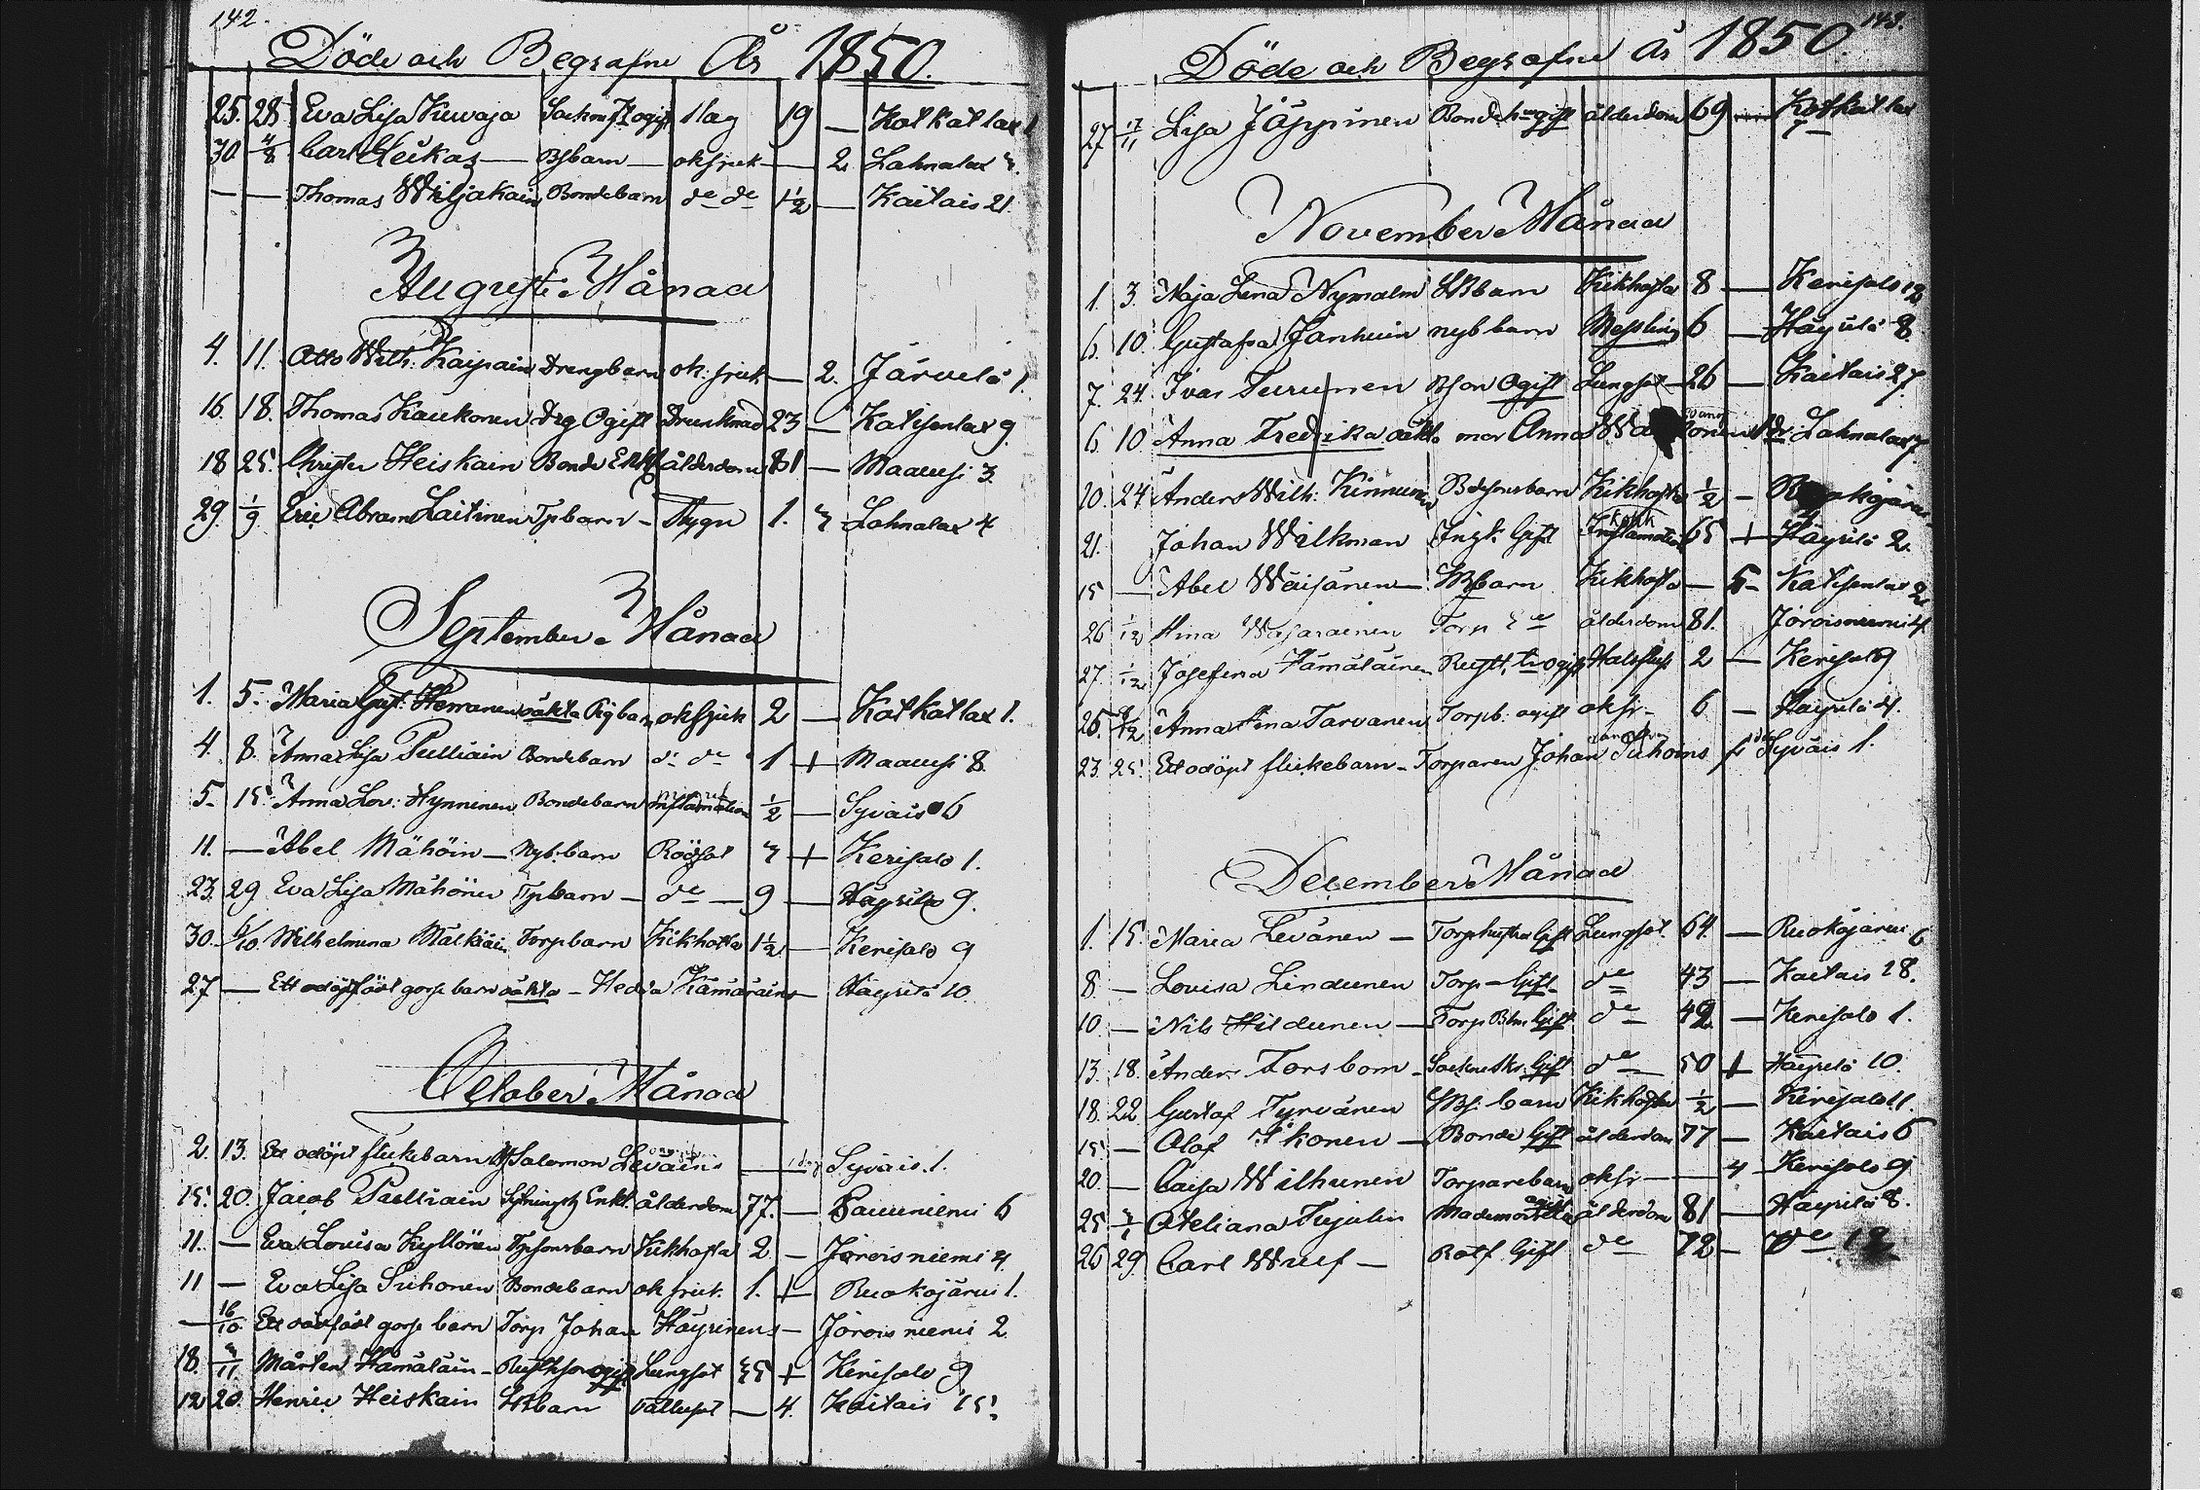 142.
Döde och Begrafne År 1850.
25. 28 Eva Lisa Kuwaja ogift slag 19 — Kotkatlax 1
30 4/8 Carl Heikas — Bsbarn — oksjuk — 2 Lahnalax 3.
— — Thomas Wiljakain Bondebarn de de 1½ — Kaitais 21.
Augusti Månad
4. 11. Otto Wilh: Kaipain Drengbarn ok: sjuk — 2. Järvelä 1.
16. 18. Thomas Kaukonen Drg Ogift Drunknad 23 — Katisenlax 9
18 25. Christer Heiskain Bonde Enkl ålderdom 81 — Maaussi 3.
29. 1/9 Eric Abram Laitinen Tpbarn — Stygn 1. 3 Lahnalax 4
September Månad
1. 5. Maria Gust: Hemanen oäkta Pigbarn oksjuk 2 — Kotkatlax 1.
4. 8. Anna Lisa Pulliain Bondebarn de de 1 + Maaussi 8.
5. 15. Anna Lov: Hynninen Bondebarn Inflamation ½ — Syväis 6
11. — Abel Mähöin — Nyb:barn Rödsot 3 + Kerisalo 1.
23. 29 Eva Lisa Mähöin Tpbarn — de — 9 — Häyrilä 9.
30. 6/10 Wilhelmina Mälkiäin Torpbarn Kikhosta 1½ — Kerisalo 9
27 — Ett odöpt födt gosse barn oäkta — Hedda Kämäräins — Häyrilä 10.
October Månad
2. 13. Ett odöpt flickebarn Salomon Leväins — 1 dag Syväis. 1.
15. 20. Jacob Pulliain Enkl. ålderdom 77. — Sauuniemi 6
11. — Eva Lovisa Kyllönen Tpsonsbarn Kikhosta 2 — Joroisniemi 4.
11 — Eva Lisa Suhonen Bondebarn ok sjuk. 1. + Ruokojärvi 1.
— 16/10 Ett dödfödt gosse barn Torp Johan Häyrinens — Joroisniemi 2.
18. 3/11 Mårten Hämäläin — Rusthson ogift Lungsot 35 + Kerisalo 9
12 20. Henric Heiskain barn vattusot — 4. Kaitais 15.
143.
Döde och Begrafne År 1850.
27 17/11 Lisa Jäppinen Bondeh. gift ålderdom 69 — Kotkatlax 7
November Månad
1. 3. Maja Lena Nymalm barn Kikhosta 8 — Kerisalo 12
6. 10. Gustafva Janhuin nyb barn Messling 6 — Häyrilä 8.
7. 24. Ivar Turunen Bson Ogift Lungsot — 26 — Kaitais 27.
6 10 Anna Fredrika oäkta mor Anna Lahnalax 7.
10. 24 Anders Wilh: Kinnunen Bdesonsbarn Kikhosta ½ —
21. Johan Wilkman Inh: Gift Inflamation 65 + Häyrilä 2.
15 — Abel Wäisänen — barn Kikhosta — 5 — Katisenlax 2
26 1/12 Torp ålderdom 81. Joroisniemi 4
27. 1/12 Josefina Hämäläinen Rustt. ogift Halsfluss 2 — Kerisalo 9
25. 8/12 Anna Stina Tarvanen Torpb: ogift oksj — 6 — Häyrilä 4.
23. 25. Ett odöpt flickebarn — Torparen Johan Suhoins Syväis 1.
December Månad
1. 15. Maria Levänen — Torphustru Gift Lungsot 64. — Ruokojärvi 6
8. — Lovisa Lindunen Torp — Gift — de 43 — Kaitais 28.
10. — Nils Hildunen — Torp Gift de 49 — Kerisalo 1.
13. 18. Anders Forsbom — Gift de 50 + Häyrilä 10.
18. 22 Gustaf Tyrvänen barn Kikhosta ½ — Kerisalo 11.
15. — Olof Ikonen — Bonde Gift ålderdom 77 — Kaitais 6
20. — Caisa Wilhunen Torparebarn oksj — — 4 Kerisalo 9
25 Mademoiselle ogift ålderdom 81 — Häyrilä 8.
26 29. Carl Wulf — Rotf. Gift de 72 — de 12